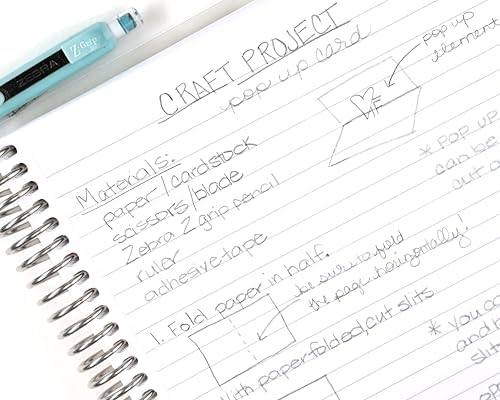 CRAFT PROJECT
pop up card
pop up
element
Materials:
paper/cardstock
scissors/blade
Zebra Z grip pencil
ruler
adhesive tape
* POP UP
can be
cut o
1. Fold paper in half.
be sure to fold
the page horizontally!
With paper folded, cut slits
* you ca
and
slit
ZEBRA
Z-Grip